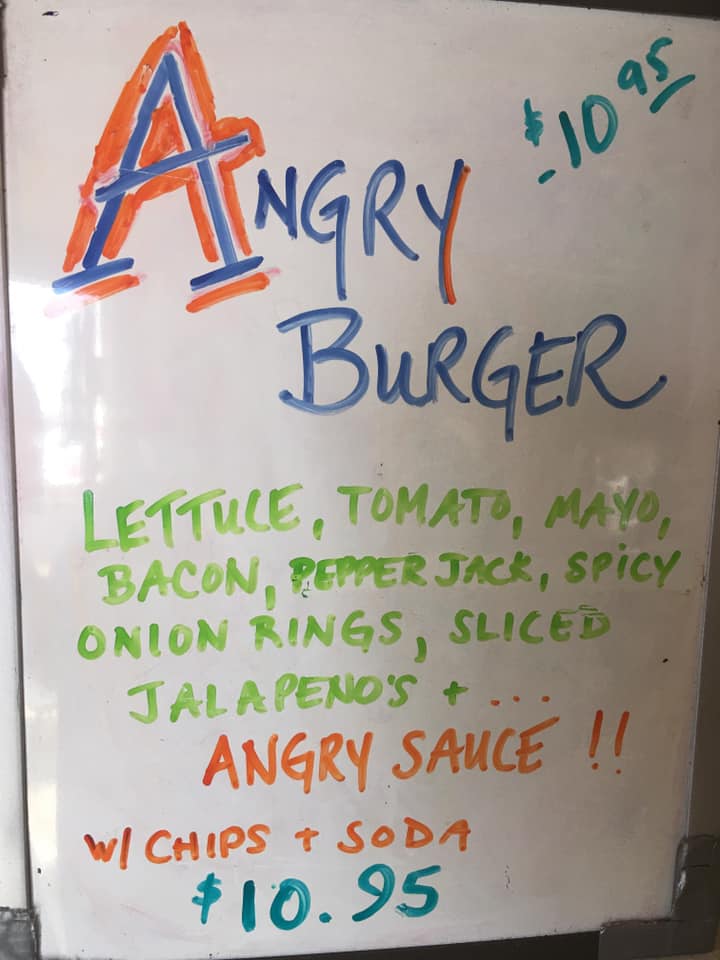 $10 95
ANGRY
BURGER
LETTUCE, TOMATO, MAYO,
BACON, PEPPER JACK, SPiCY
ONION RINGS, SLICED
JALAPENO'S + ...
ANGRY SAUCE !!
W/ CHIPS + SODA
$10.95